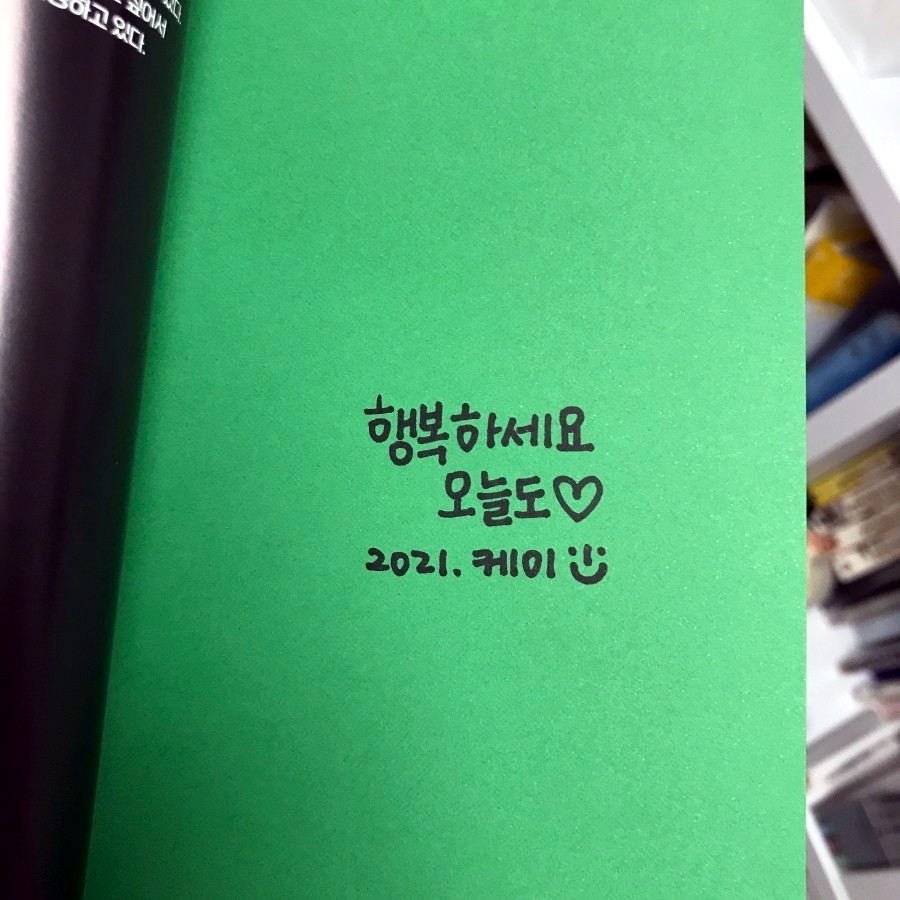 하고 있다.
행복하세요
오늘도♡
2021. 케이